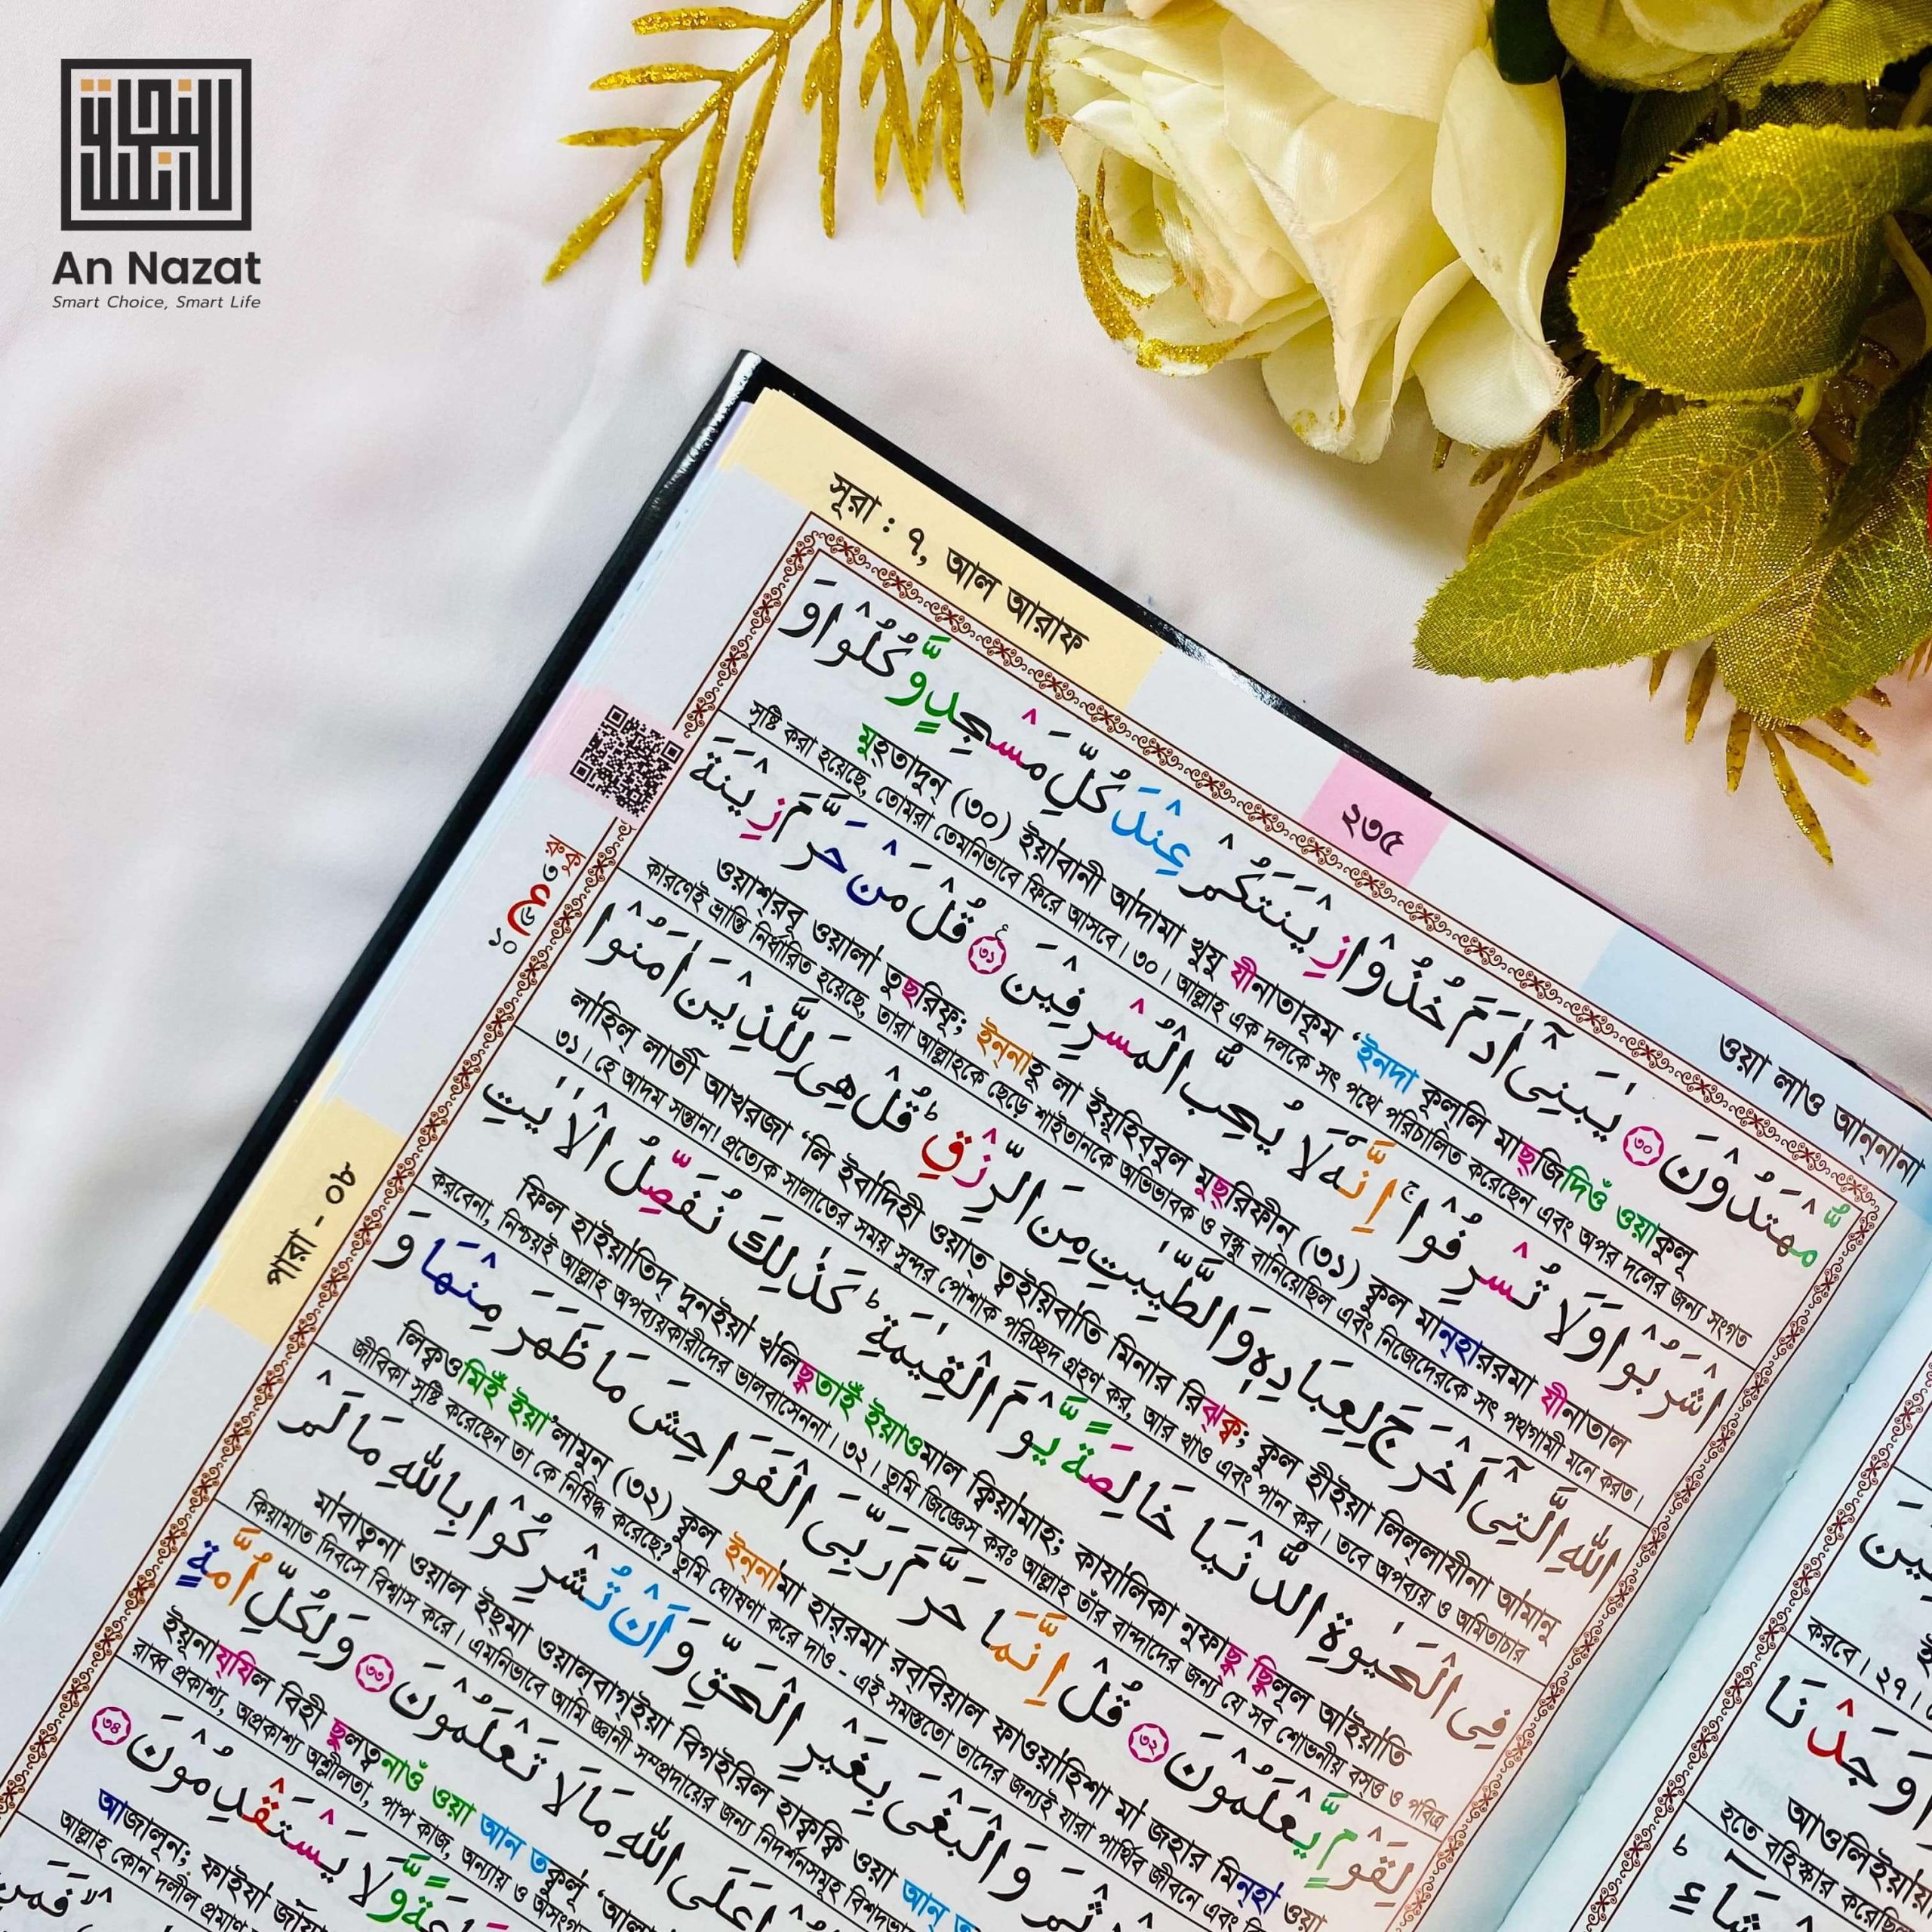 النجاة
An Nazat
Smart Choice, Smart Life
সূরা : ৭, আল আরাফ
২৩৫
ওয়া লাও আন্‌নানা
مُّهْتَدُوْنَ ۝٣٠ يٰبَنِىْٓ اٰدَمَ خُذُوْا زِيْنَتَكُمْ عِنْدَ كُلِّ مَسْجِدٍ وَّكُلُوْا وَ
মুহ্‌তাদুন্ (৩০) ইয়াবানী আদামা খুযু যীনাতাকুম ‘ইনদা কুল্‌লি মাছ্‌জিদিওঁ ওয়াকুলূ
সৃষ্টি করা হয়েছে, তোমরা তেমনিভাবে ফিরে আসবে। ৩০। আল্লাহ এক দলকে সৎ পথে পরিচালিত করেছেন এবং অপর দলের জন্য সংগত
اشْرَبُوْا وَلَا تُسْرِفُوْا ۚ اِنَّهٗ لَا يُحِبُّ الْمُسْرِفِيْنَ ۝٣١ قُلْ مَنْ حَرَّمَ زِيْنَةَ
ওয়াশ্‌রবূ ওয়ালা তুছরিফূ; ইন্‌নাহূ লা ইয়ূহিব্‌বুল মুছ্‌রিফীন্ (৩১) কুল মান্‌হাররমা যীনাতাল
কারণেই ভ্রান্তি নির্ধারিত হয়েছে, তারা আল্লাহকে ছেড়ে শাইতানকে অভিভাবক ও বন্ধু বানিয়েছিল এবং নিজেদেরকে সৎ পথগামী মনে করত।
اللّٰهِ الَّتِىْٓ اَخْرَجَ لِعِبَادِهٖ وَالطَّيِّبٰتِ مِنَ الرِّزْقِ ؕ قُلْ هِىَ لِلَّذِيْنَ اٰمَنُوْا
লাহিল্ লাতী আখরজা ‘লি ইবাদিহী ওয়াত্ ত্বইয়িবাতি মিনার রিঝক্ব; কুল হীইয়া লিল্‌লাযীনা আমানু
৩১। হে আদম সন্তান! প্রত্যেক সালাতের সময় সুন্দর পোশাক পরিচ্ছদ গ্রহণ কর, আর খাও এবং পান কর। তবে অপব্যয় ও অমিতাচার
فِى الْحَيٰوةِ الدُّنْيَا خَالِصَةً يَّوْمَ الْقِيٰمَةِ ؕ كَذٰلِكَ نُفَصِّلُ الْاٰيٰتِ
ফিল হাইয়াতিদ্ দুনইয়া খলিছ্বতাইঁ ইয়াওমাল ক্বিয়ামাহ; কাযালিকা নুফাছ্ব ছ্বিলূল আইয়াতি
করবেনা, নিশ্চয়ই আল্লাহ অপব্যয়কারীদের ভালবাসেননা। ৩২। তুমি জিজ্ঞেস করঃ আল্লাহ তাঁর বান্দাদের জন্য যে সব শোভনীয় বস্তু ও পবিত্র
لِقَوْمٍ يَّعْلَمُوْنَ ۝٣٢ قُلْ اِنَّمَا حَرَّمَ رَبِّىَ الْفَوَاحِشَ مَا ظَهَرَ مِنْهَا وَ
লিক্বওমিইঁ ইয়া’লামুন্ (৩২) কুল ইন্‌নামা হার্‌রমা রব্‌বিয়াল ফাওয়াহিশা মা জহার মিন্‌হা ওয়া
জীবিকা সৃষ্টি করেছেন তা কে নিষিদ্ধ করেছে? তুমি ঘোষণা করে দাও - এই সমস্ততো তাদের জন্যই যারা পার্থিব জীবনে এবং
وَالْبَغْىَ بِغَيْرِ الْحَقِّ وَاَنْ تُشْرِكُوْا بِاللّٰهِ مَا لَمْ
মাবাত্বনা ওয়াল ইছমা ওয়াল্‌বাগ্‌ইয়া বিগইরিল হাক্বক্বি ওয়া আন্
কিয়ামাত দিবসে বিশ্বাস করে। এমনিভাবে আমি জ্ঞানী সম্প্রদায়ের জন্য নিদর্শনসমূহ
عَلَى اللّٰهِ مَا لَا تَعْلَمُوْنَ ۝٣٣ وَلِكُلِّ اُمَّةٍ
ইয়ূনায্‌যিল বিহী ছুলত্বনাওঁ ওয়া আন তকুলূ
রাব্ব প্রকাশ্য, অপ্রকাশ্য অশ্লীলতা, পাপ কাজ, অন্যায় ও
وَّلَا يَسْتَقْدِمُوْنَ ۝٣٤
আজালূন; ফাইযা
আল্লাহ কোন দলীল প্রমাণ
রুকু
৩
ع
৬
১০
পারা - ০৮
করবে। ২৭।
وَجَدْنَا
হতে বহিষ্কার করেছিল
আওলিইয়ায়